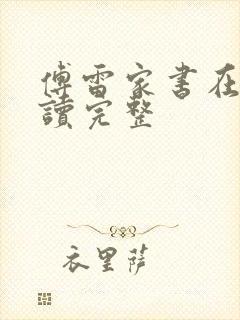 傅雷家书在
讀完整
衣里薩